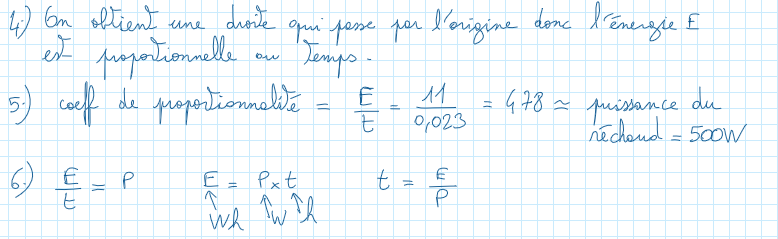 4.) On obtient une droite qui passe par l'origine donc l'énergie E
est proportionnelle au temps.
5.) coeff de proportionnalité = E/t = 11/0,023 = 478 ≈ puissance du
réchaud = 500W
6.) E/t = P E = P × t t = E/P
Wh W h